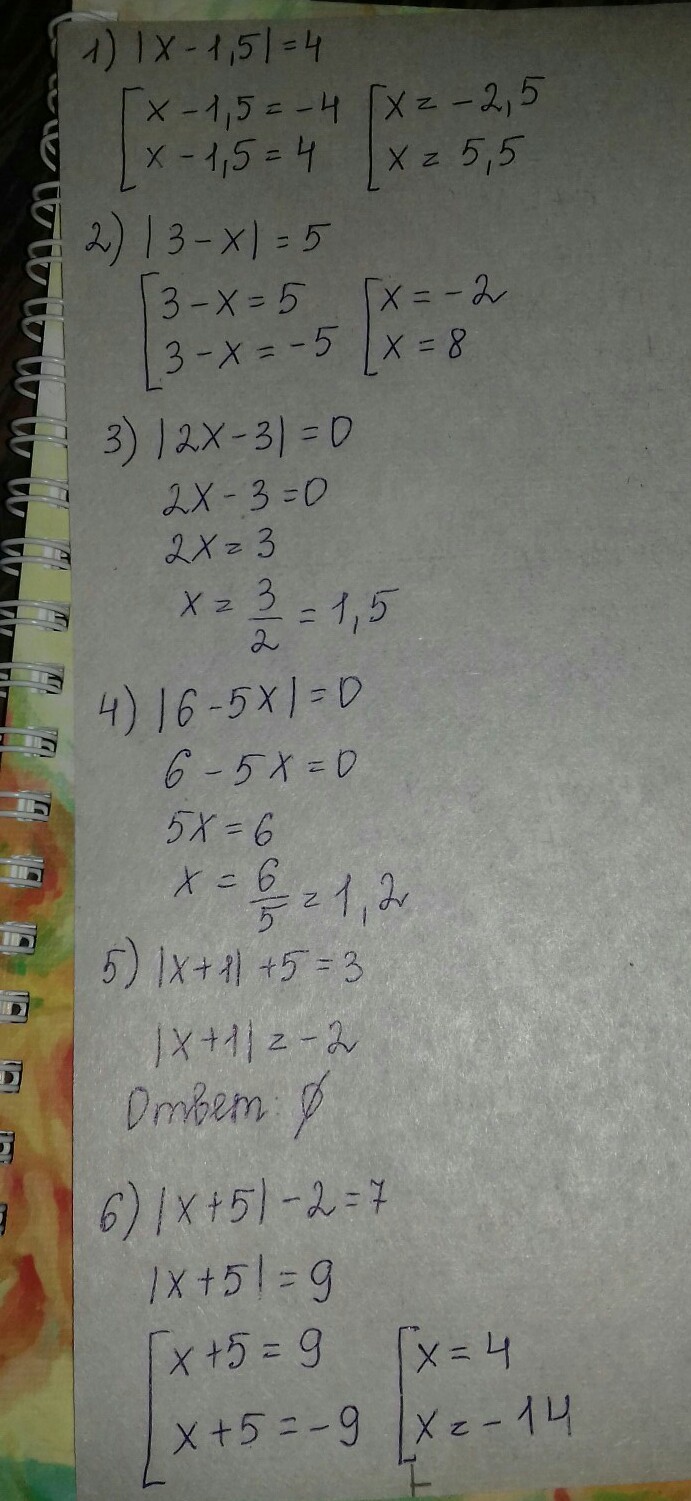 1) |x - 1,5| = 4
[x - 1,5 = -4 [x = -2,5
[x - 1,5 = 4 [x = 5,5
2) |3 - x| = 5
[3 - x = 5 [x = -2
[3 - x = -5 [x = 8
3) |2x - 3| = 0
2x - 3 = 0
2x = 3
x = 3/2 = 1,5
4) |6 - 5x| = 0
6 - 5x = 0
5x = 6
x = 6/5 = 1,2
5) |x + 1| + 5 = 3
|x + 1| = -2
Ответ: ∅
6) |x + 5| - 2 = 7
|x + 5| = 9
[x + 5 = 9 [x = 4
[x + 5 = -9 [x = -14